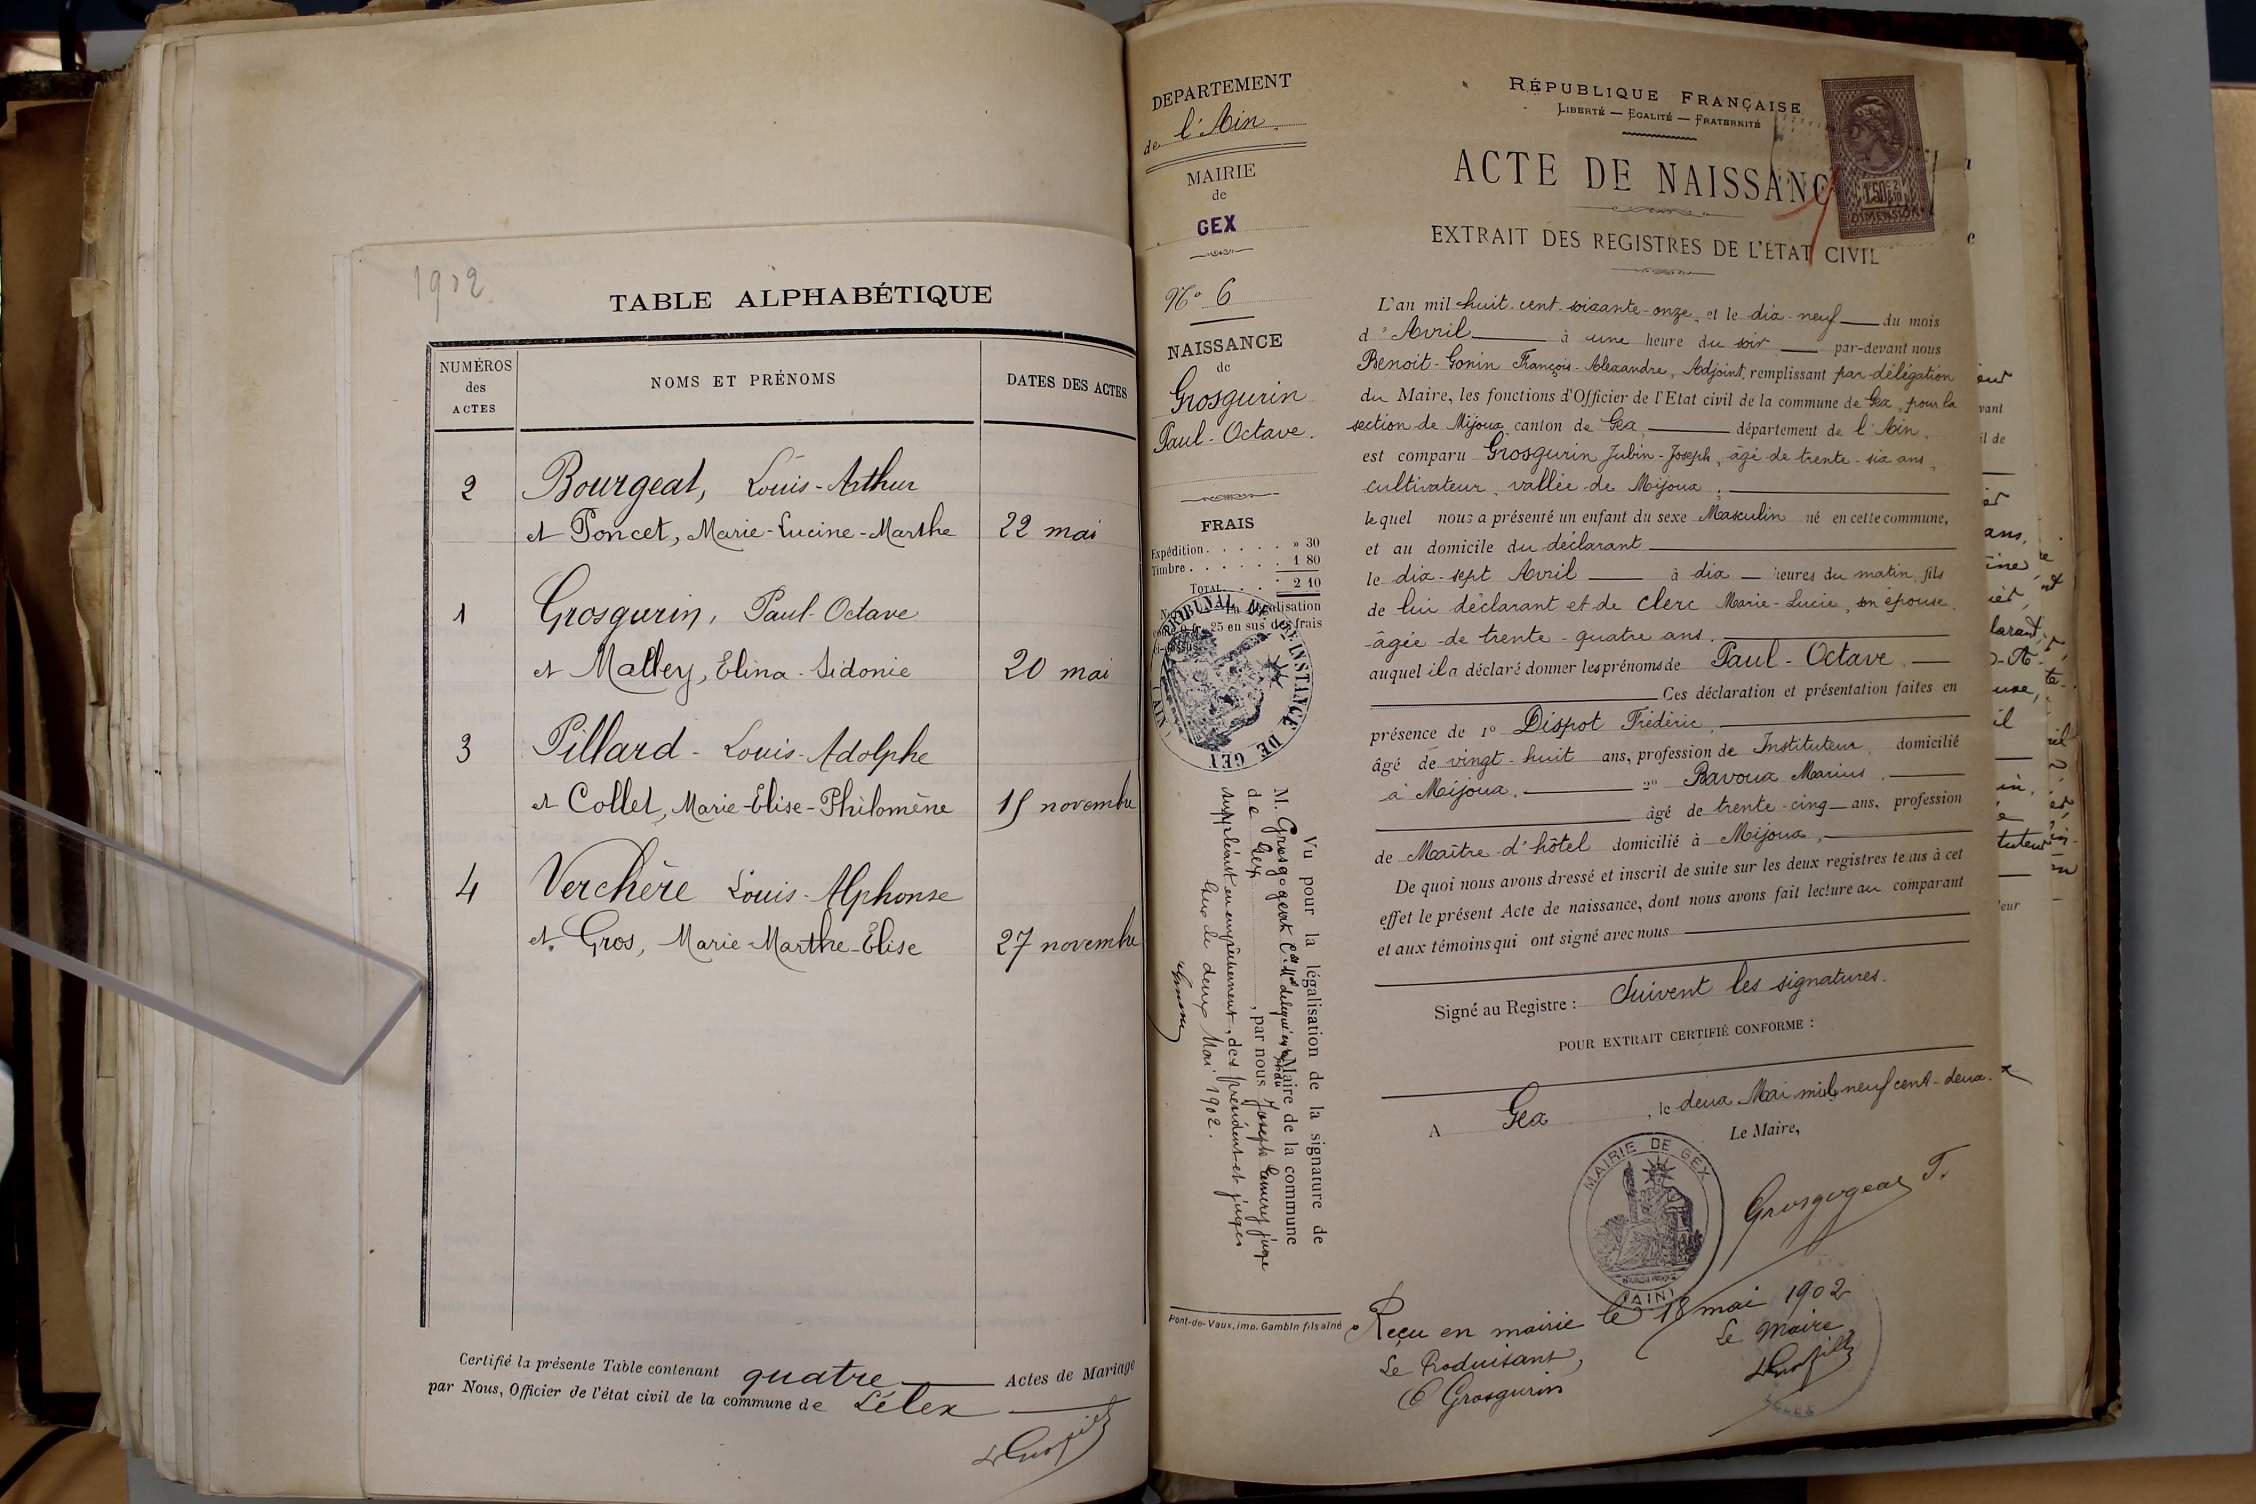 1902
TABLE ALPHABÉTIQUE
NUMÉROS
des
ACTES
NOMS ET PRÉNOMS
DATES DES ACTES
2 Bourgeat, Louis-Arthur
et Poncet, Marie-Lucine-Marthe 22 mai
1 Grosgurin, Paul-Octave
et Malley, Elina-Sidonie 20 mai
3 Pillard - Louis-Adolphe
et Collet, Marie-Elise-Philomène 15 novembre
4 Verchère Louis-Alphonse
et Gros, Marie-Marthe-Elise 27 novembre
Certifié la présente Table contenant quatre Actes de Mariage
par Nous, Officier de l'état civil de la commune de Lélex
DEPARTEMENT
de l'Ain
MAIRIE
de
GEX
No 6
NAISSANCE
de
Grosgurin
Paul-Octave.
FRAIS
Expédition . . . . . » 30
Timbre . . . . . . 1 80
TOTAL . . . 2 10
La légalisation
25 en sus des frais
TRIBUNAL DE 1ère INSTANCE DE GEX
Vu pour la légalisation de la signature de
M. Grosgogeat Cer Mal délégué Maire de la commune
de Gex, par nous Joseph juge
suppléant en empêchement des président et juges
Gex le deux Mai 1902.
Pont-de-Vaux, imp. Gambin fils aîné
RÉPUBLIQUE FRANÇAISE
LIBERTÉ — EGALITÉ — FRATERNITÉ
ACTE DE NAISSANC
EXTRAIT DES REGISTRES DE L'ETAT CIVIL
1f50c 2/10
DIMENSION
L'an mil huit cent soixante-onze, et le dix-neuf du mois
d'Avril à une heure du soir par-devant nous
Benoit-Gonin François-Alexandre, Adjoint, remplissant par délégation
du Maire, les fonctions d'Officier de l'Etat civil de la commune de Gex, pour la
section de Mijoux, canton de Gex, département de l'Ain.
est comparu Grosgurin Jubin-Joseph, âgé de trente-six ans,
cultivateur, vallée de Mijoux,
lequel nous a présenté un enfant du sexe Masculin né en cette commune,
et au domicile du déclarant
le dix-sept Avril à dix heures du matin, fils
de lui déclarant et de Clerc Marie-Lucie, son épouse,
âgée de trente-quatre ans.
auquel il a déclaré donner les prénoms de Paul-Octave.
Ces déclaration et présentation faites en
présence de 1o Dispot Frédéric,
âgé de vingt-huit ans, profession de Instituteur, domicilié
à Mijoux. 2o Bavoux Marius,
âgé de trente-cinq ans, profession
de Maître d'hôtel domicilié à Mijoux,
De quoi nous avons dressé et inscrit de suite sur les deux registres tenus à cet
effet le présent Acte de naissance, dont nous avons fait lecture au comparant
et aux témoins qui ont signé avec nous
Signé au Registre : Suivent les signatures.
POUR EXTRAIT CERTIFIÉ CONFORME :
A Gex, le deux Mai mil neuf cent-deux.
Le Maire,
MAIRIE DE GEX
(AIN)
Grosgogeat F.
Reçu en mairie le 18 mai 1902
Le Produisant, Le Maire
O Grosgurin